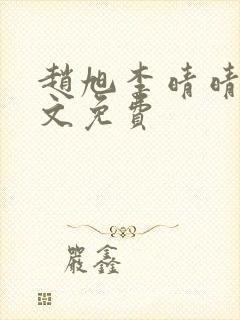 趙旭李晴晴
文免費
嚴鑫